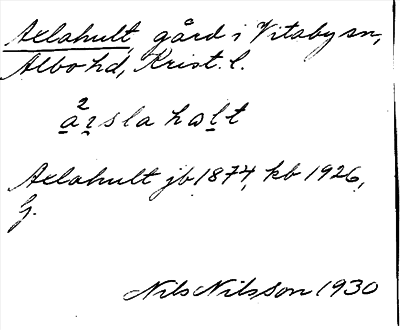 Axlahult, gård i Vitaby sn,
Albo hd, Krist. l.
2
a͟ı͟slahɷl͟t
Axlahult jb 1874, kb 1926,
Nils Nilsson 1930